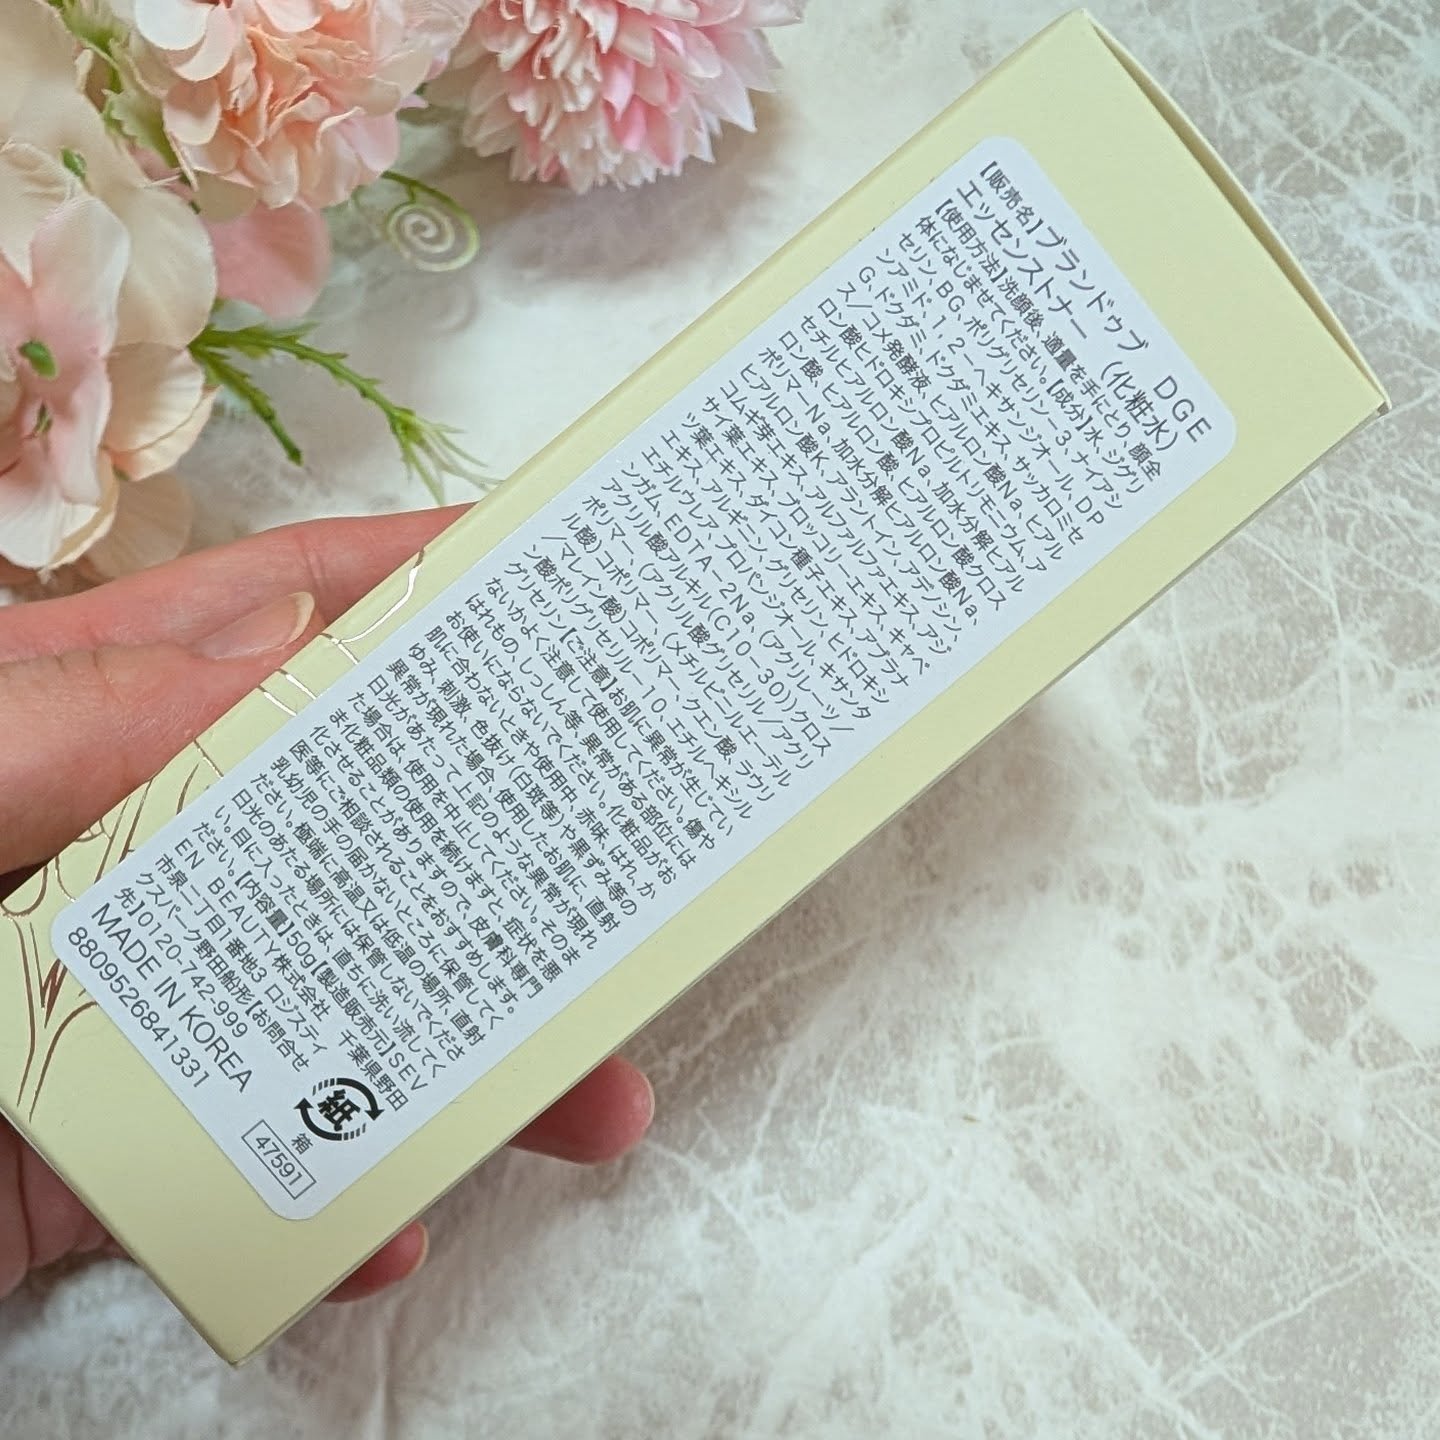 【販売名】ブランドゥブ DGE
エッセンストナー (化粧水)
【使用方法】洗顔後、適量を手にとり、顔全
体になじませてください。【成分】水、ジグリ
セリン、BG、ポリグリセリン-3、ナイアシ
ンアミド、1,2-ヘキサンジオール、DP
G、ドクダミ、ドクダミエキス、サッカロミセ
ス/コメ発酵液、ヒアルロン酸Na、ヒアル
ロン酸ヒドロキシプロピルトリモニウム、ア
セチルヒアルロン酸Na、加水分解ヒアル
ロン酸、ヒアルロン酸、ヒアルロン酸クロス
ポリマーNa、加水分解ヒアルロン酸Na、
ヒアルロン酸K、アラントイン、アデノシン、
コムギ芽エキス、アルファルファエキス、アジ
サイ葉エキス、ブロッコリーエキス、キャベ
ツ葉エキス、ダイコン種子エキス、アブラナ
エキス、アルギニン、グリセリン、ヒドロキシ
エチルウレア、プロパンジオール、キサンタ
ンガム、EDTA-2Na、(アクリレーツ/
アクリル酸アルキル(C10-30))クロス
ポリマー、(アクリル酸グリセリル/アクリ
ル酸)コポリマー、(メチルビニルエーテル
/マレイン酸)コポリマー、クエン酸、ラウリ
ン酸ポリグリセリル-10、エチルヘキシル
グリセリン【ご注意】お肌に異常が生じてい
ないかよく注意して使用してください。傷や
はれもの、しっしん等、異常がある部位には
お使いにならないでください。化粧品がお
肌に合わないときや使用中、赤味、はれ、か
ゆみ、刺激、色抜け(白斑等)や黒ずみ等の
異常が現れた場合、使用したお肌に、直射
日光があたって上記のような異常が現れ
た場合は、使用を中止してください。そのま
ま化粧品類の使用を続けますと、症状を悪
化させることがありますので、皮膚科専門
医等にご相談されることをおすすめします。
乳幼児の手の届かないところに保管してく
ださい。極端に高温又は低温の場所、直射
日光のあたる場所には保管しないでくださ
い。目に入ったときは、直ちに洗い流してく
ださい。【内容量】50g【製造販売元】SEV
EN BEAUTY株式会社 千葉県野田
市泉二丁目1番地3 ロジスティ
クスパーク野田船形【お問合せ
先】0120-742-999
MADE IN KOREA
8809526841331
紙
箱
47591